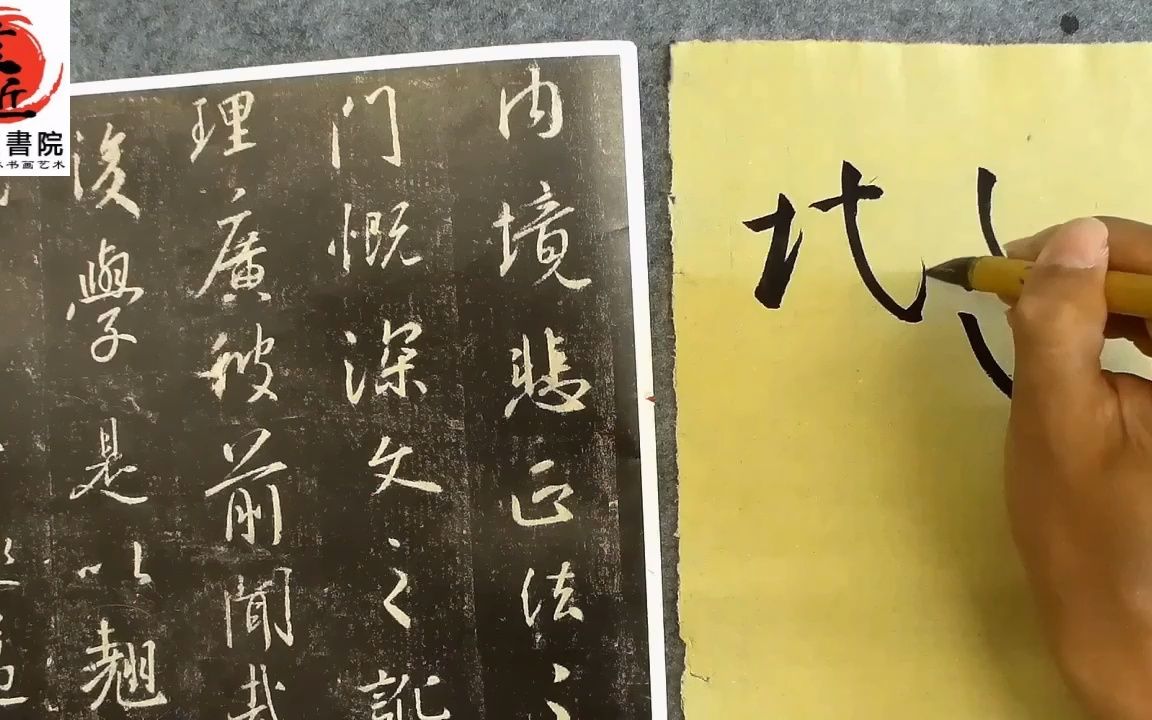 内境悲正法之
门慨深文之訛
理廣彼前聞
後學是以翹
書院
书画艺术